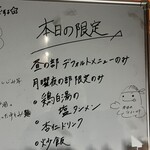 本日の限定
昼の部 デフォルトメニューのみ
月曜夜の部 限定のみ
・鶏白湯の
塩タンメン
・杏仁ドリンク
・炒飯